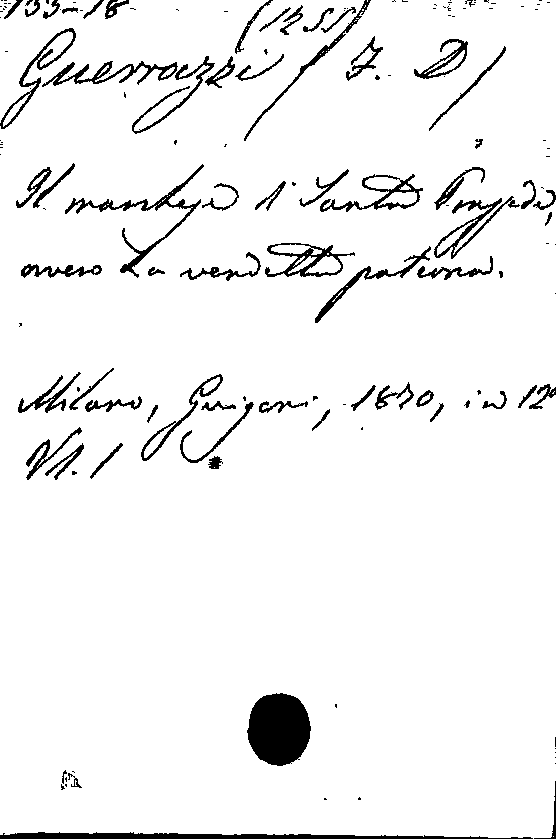 133-18
(1255)
Guerrazzi / F. D /
Il marchese di Santa
ovvero La vendetta paterna.
Milano, Guigoni, 1870, in 12º
V 1. /